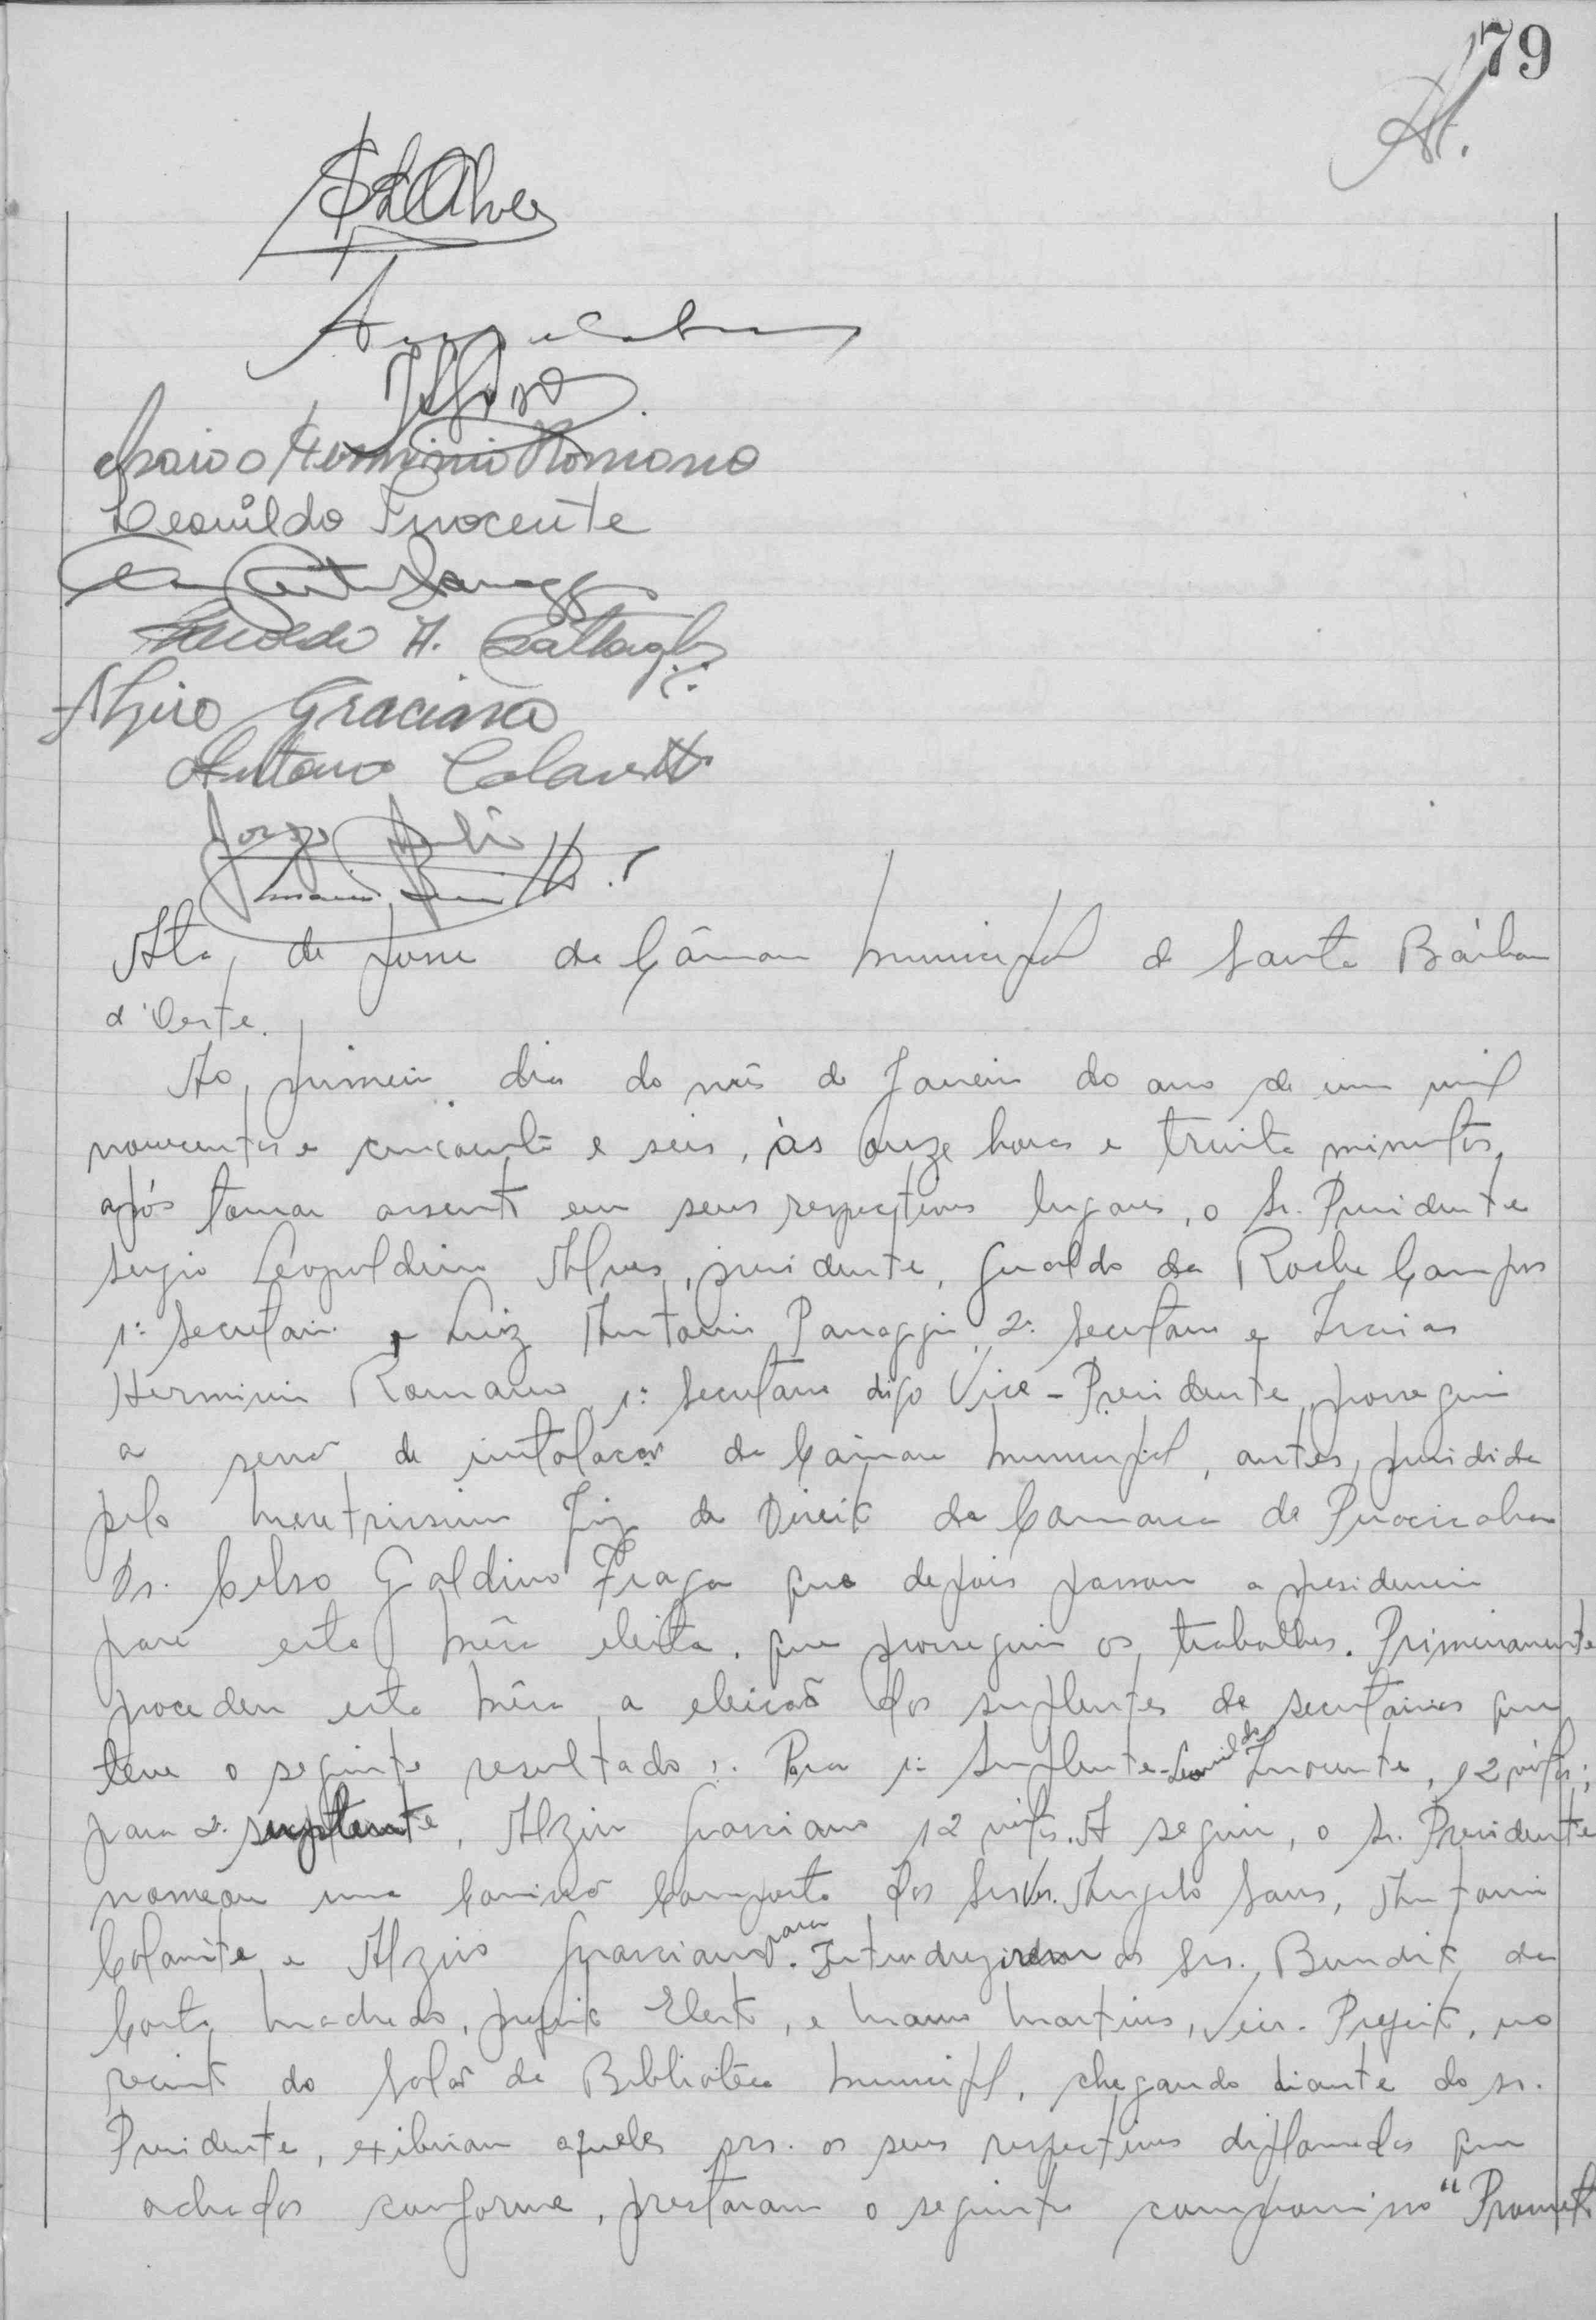 79
SLAlves
Isaias Herminio Romano
Leonildo Inocente
A. Battagli
Alziro Graciano
Antonio Colanete
Jorge
Ata de posse da Câmara Municipal de Santa Bárbara
d'Oeste.
Ao primeiro dia do mês de Janeiro do ano de um mil
novecentos e cincoenta e seis, às onze horas e trinta minutos,
após tomar assento em seus respectivos lugares, o Sr. Presidente
Sergio Leopoldino Alves, presidente, Geraldo da Rocha Campos
1º Secretario e Luiz Antonio Panaggio, 2º Secretario e Isaias
Herminio Romano, 1º Secretario digo Vice-Presidente, prosseguiu
a sessão de instalação da Câmara Municipal, antes, presidida
pelo Meretrissimo Juiz de Direito da Comarca de Piracicaba
Dr. Celso Galdino Fraga que depois passou a presidencia
para esta mêsa eleita, que prosseguiu os trabalhos. Primeiramente
procedeu esta mêsa a eleição dos suplentes de secretarios que
teve o seguinte resultado: Para 1º Suplente - Leonildo Inocente, 12 votos;
para 2º suplente, Alziro Graciano 12 votos. A seguir, o Sr. Presidente
nomeou uma Comissão Composta dos Snrs. Angelo Sans, Antonio
Colanite e Alziro Grassiano para Introduzirem os Srs. Benedito da
Costa Machado, prefeito Eleito, e Mario Martins, Vice-Prefeito, no
recinto do Salão da Biblioteca Municipal, chegando diante do sr.
Presidente, exibiram aqueles srs. os seus respectivos diplomados que
achados conforme, prestaram o seguinte compromisso "Prometo